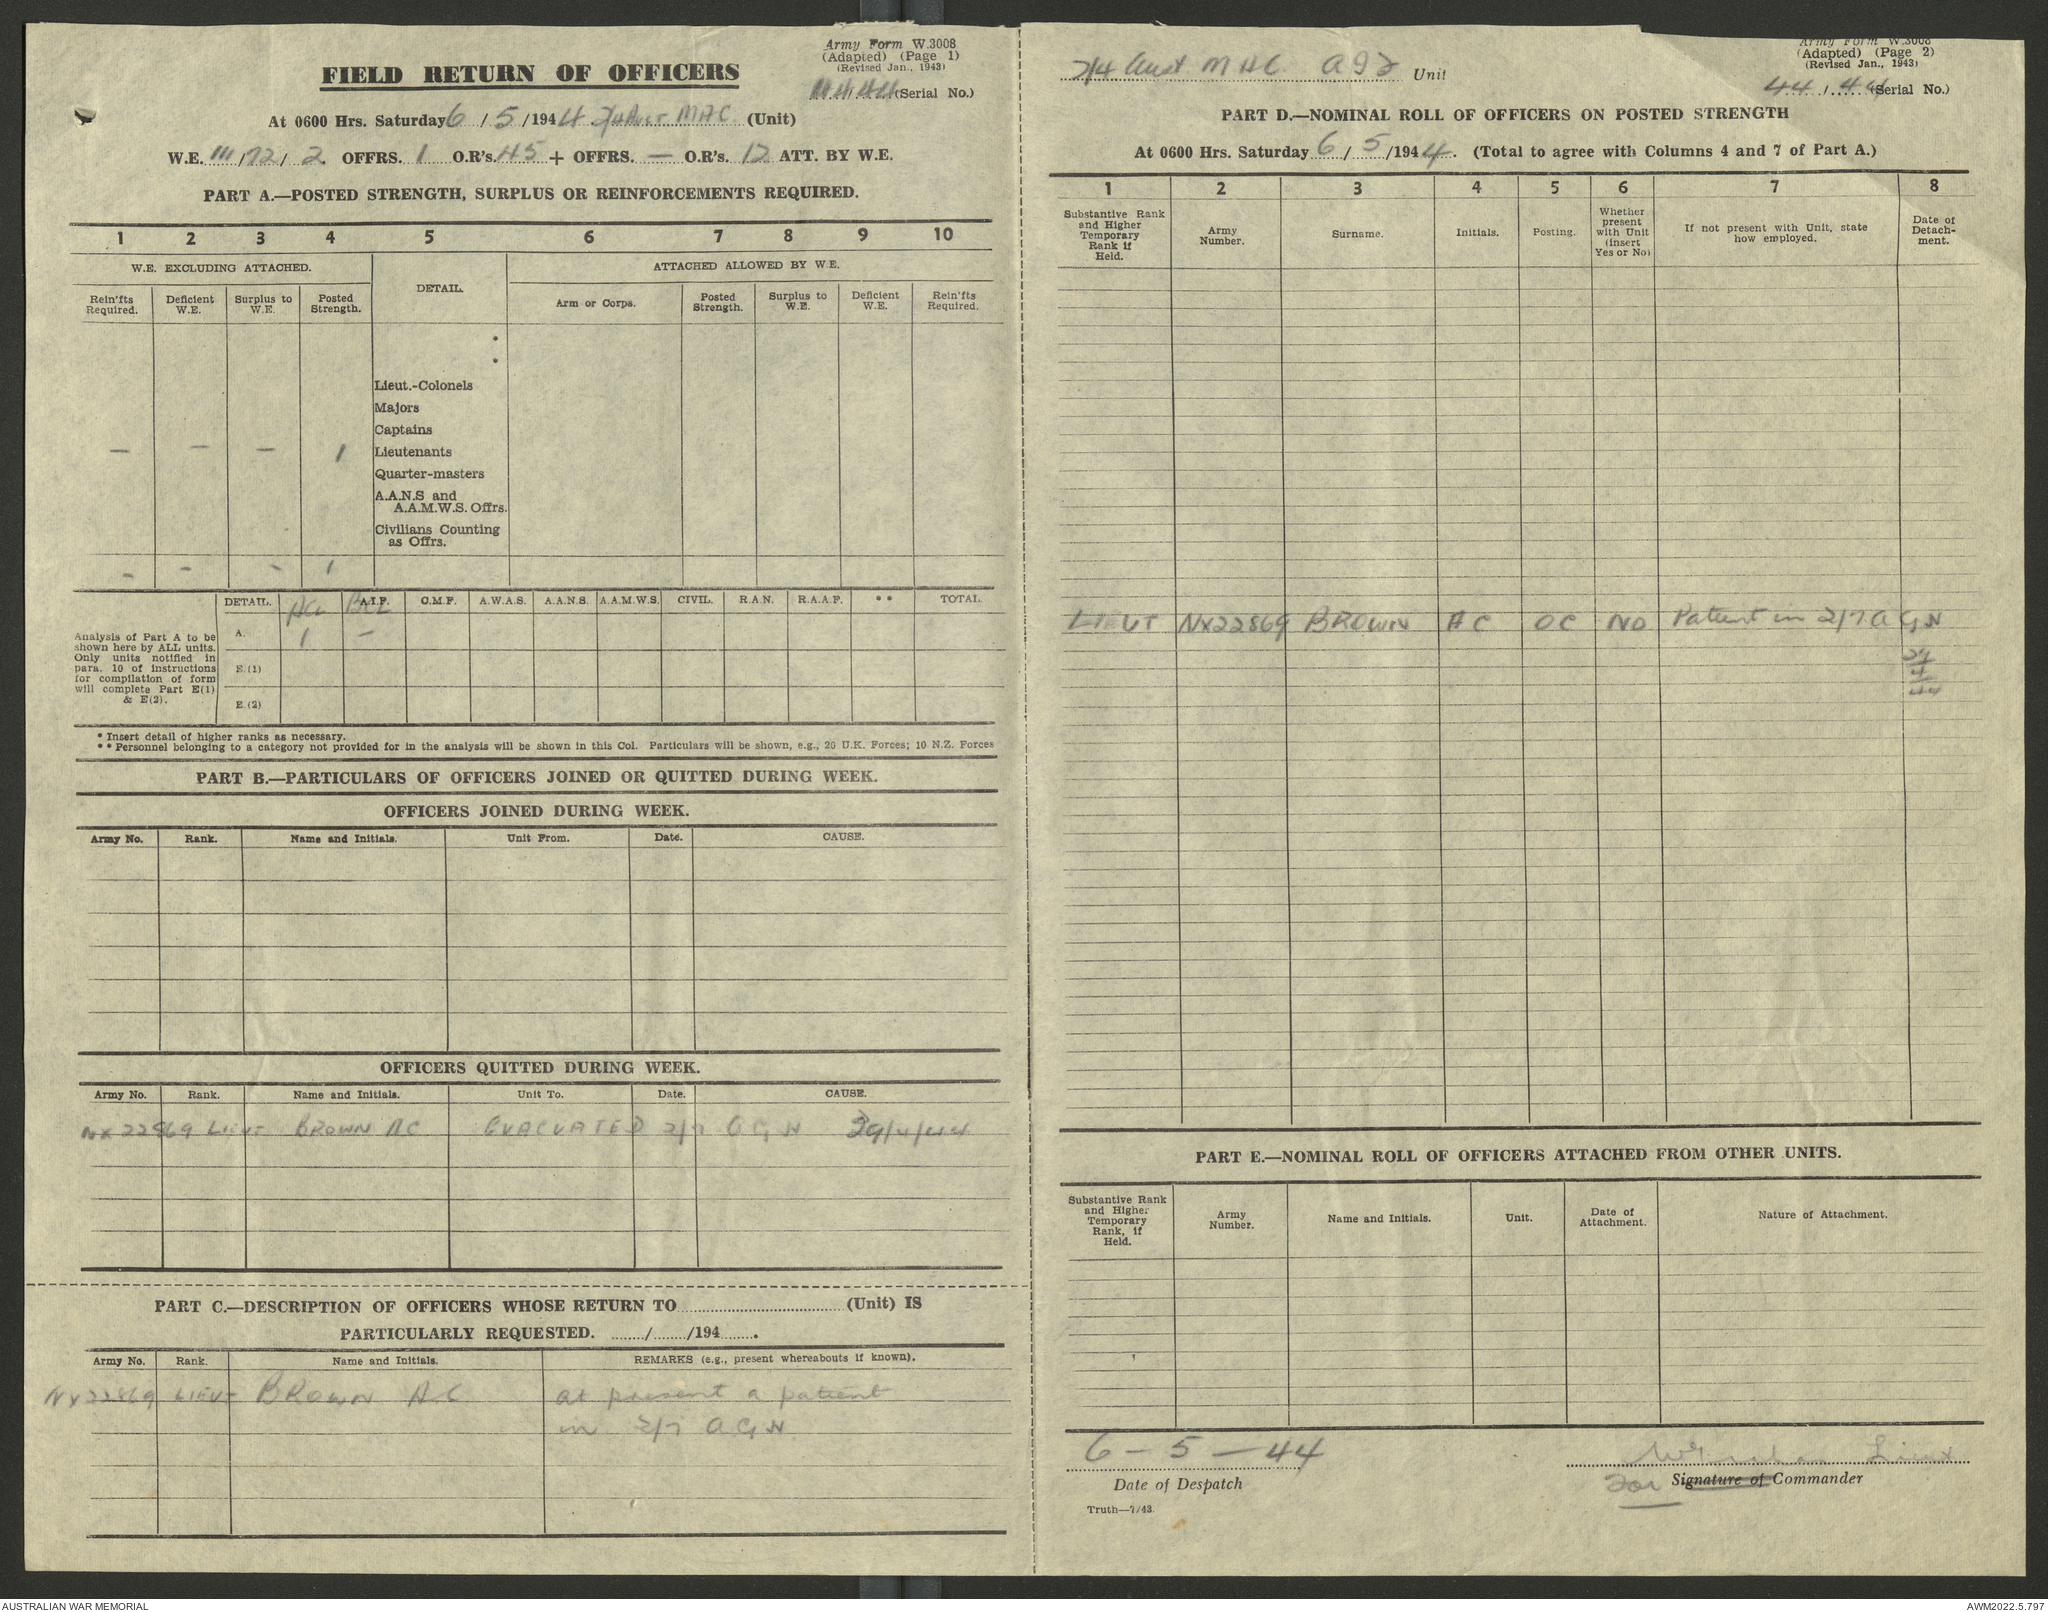 Army Form W.3008
(Adapted) (Page 1)
(Revised Jan., 1943)
(Serial No.)
FIELD RETURN OF OFFICERS
At 0600 Hrs. Saturday 6 / 5 / 1944 2/4 Aust MAC (Unit)
W.E. III / 72 / 2 OFFRS. 1 O.R's. 45 + OFFRS. — O.R's. 12 ATT. BY W.E.
PART A.—POSTED STRENGTH, SURPLUS OR REINFORCEMENTS REQUIRED.
1 2 3 4 5 6 7 8 9 10
W.E. EXCLUDING ATTACHED. DETAIL. ATTACHED ALLOWED BY W.E.
Rein'fts Required. Deficient W.E. Surplus to W.E. Posted Strength. Arm or Corps. Posted Strength. Surplus to W.E. Deficient W.E. Rein'fts Required.
*
*
Lieut.-Colonels
Majors
Captains
— — — 1 Lieutenants
Quarter-masters
A.A.N.S and
A.A.M.W.S. Offrs.
Civilians Counting
as Offrs.
— — — 1
DETAIL. A.I.F. C.M.F. A.W.A.S. A.A.N.S. A.A.M.W.S. CIVIL. R.A.N. R.A.A.F. ** TOTAL
Analysis of Part A to be
shown here by ALL units.
Only units notified in
para. 10 of instructions
for compilation of form
will complete Part E(1)
& E(2).
A. 1 —
E.(1)
E.(2)
* Insert detail of higher ranks as necessary.
** Personnel belonging to a category not provided for in the analysis will be shown in this Col. Particulars will be shown, e.g., 20 U.K. Forces; 10 N.Z. Forces
PART B.—PARTICULARS OF OFFICERS JOINED OR QUITTED DURING WEEK.
OFFICERS JOINED DURING WEEK.
Army No. Rank. Name and Initials. Unit From. Date. CAUSE.
OFFICERS QUITTED DURING WEEK.
Army No. Rank. Name and Initials. Unit To. Date. CAUSE.
NX22869 LIEUT BROWN AC EVACUATED 2/7 A G H 29/4/44
PART C.—DESCRIPTION OF OFFICERS WHOSE RETURN TO (Unit) IS
PARTICULARLY REQUESTED. / /194 .
Army No. Rank. Name and Initials. REMARKS (e.g., present whereabouts if known).
NX22869 LIEUT BROWN A.C at present a patient
in 2/7 A G H
Army Form W.3008
(Adapted) (Page 2)
(Revised Jan., 1943)
2/4 Aust M A C A I F Unit
44 / 44 (Serial No.)
PART D.—NOMINAL ROLL OF OFFICERS ON POSTED STRENGTH
At 0600 Hrs. Saturday 6 / 5 / 1944. (Total to agree with Columns 4 and 7 of Part A.)
1 2 3 4 5 6 7 8
Substantive Rank and Higher Temporary Rank if Held. Army Number. Surname. Initials. Posting. Whether present with Unit (insert Yes or No) If not present with Unit, state how employed. Date of Detach-ment.
LIEUT NX22869 BROWN AC OC NO Patient in 2/7 A G H
29
4
44
PART E.—NOMINAL ROLL OF OFFICERS ATTACHED FROM OTHER UNITS.
Substantive Rank and Higher Temporary Rank, if Held. Army Number. Name and Initials. Unit. Date of Attachment. Nature of Attachment.
6 - 5 - 44
Date of Despatch
Lieut
For Signature of Commander
Truth—7/43.
AUSTRALIAN WAR MEMORIAL
AWM2022.5.797